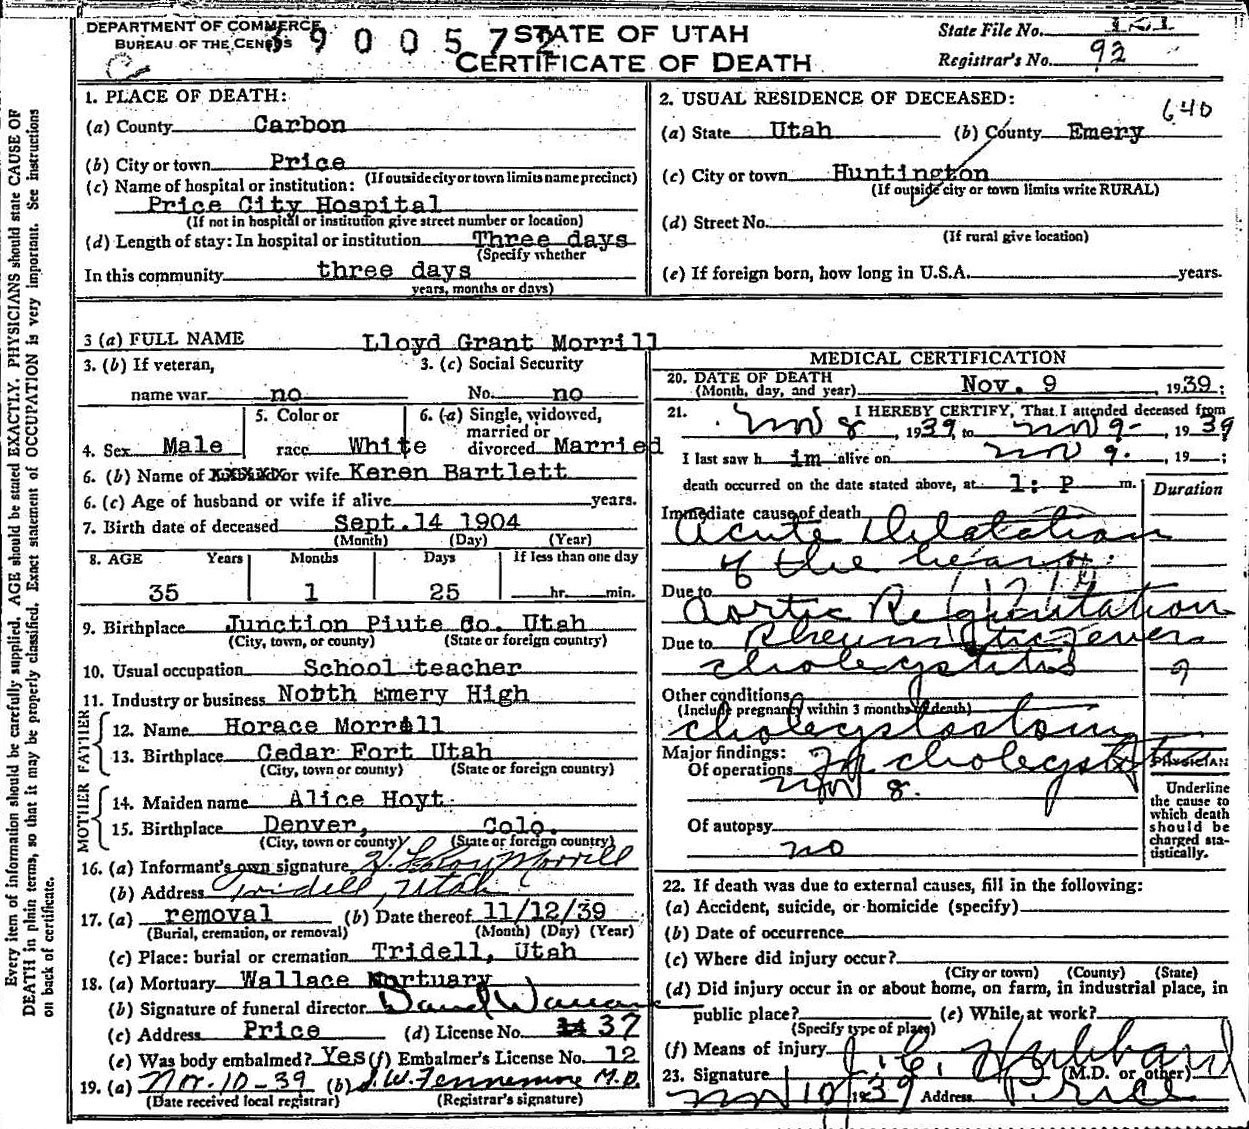 DEPARTMENT OF COMMERCE
BUREAU OF THE CENSUS
3900572
STATE OF UTAH
CERTIFICATE OF DEATH
State File No. 121
Registrar's No. 92
Every item of information should be carefully supplied. AGE should be stated EXACTLY. PHYSICIANS should state CAUSE OF
DEATH in plain terms, so that it may be properly classified. Exact statement of OCCUPATION is very important. See instructions
on back of certificate.
1. PLACE OF DEATH:
(a) County Carbon
(b) City or town Price
(If outside city or town limits name precinct)
(c) Name of hospital or institution:
Price City Hospital
(If not in hospital or institution give street number or location)
(d) Length of stay: In hospital or institution Three days
(Specify whether
In this community three days
years, months or days)
2. USUAL RESIDENCE OF DECEASED:
640
(a) State Utah (b) County Emery
(c) City or town Huntington
(If outside city or town limits write RURAL)
(d) Street No.
(If rural give location)
(e) If foreign born, how long in U.S.A. years.
3 (a) FULL NAME Lloyd Grant Morrill
3. (b) If veteran, 3. (c) Social Security
name war no No. no
5. Color or 6. (a) Single, widowed,
married or
4. Sex Male race White divorced Married
6. (b) Name of or wife Keren Bartlett
6. (c) Age of husband or wife if alive years.
7. Birth date of deceased Sept. 14 1904
(Month) (Day) (Year)
8. AGE Years Months Days If less than one day
35 1 25 hr. min.
9. Birthplace Junction Piute Co. Utah
(City, town, or county) (State or foreign country)
10. Usual occupation School teacher
11. Industry or business Nobth Emery High
FATHER
12. Name Horace Morrill
13. Birthplace Cedar Fort Utah
(City, town or county) (State or foreign country)
MOTHER
14. Maiden name Alice Hoyt
15. Birthplace Denver, Colo.
(City, town or county) (State or foreign country)
16. (a) Informant's own signature H. LeRoy Morrill
(b) Address Tridell, Utah
17. (a) removal (b) Date thereof 11/12/39
(Burial, cremation, or removal) (Month) (Day) (Year)
(c) Place: burial or cremation Tridell, Utah
18. (a) Mortuary Wallace Mortuary
(b) Signature of funeral director
(c) Address Price (d) License No. 37
(e) Was body embalmed? Yes (f) Embalmer's License No. 12
19. (a) Nov. 10-39 (b) J.W. Fennemore M.D.
(Date received local registrar) (Registrar's signature)
MEDICAL CERTIFICATION
20. DATE OF DEATH
(Month, day, and year) Nov. 9, 1939;
21. I HEREBY CERTIFY, That I attended deceased from
Nov 8, 1939, to Nov 9-, 1939
I last saw h im alive on Nov 9., 19 ;
death occurred on the date stated above, at 1: P m.
Duration
Immediate cause of death
Acute Dilatation
of the heart
Due to
Aortic Regurgitation
Due to Rheumatic fever
cholecystitis ?
Other conditions
(Include pregnancy within 3 months of death)
cholecystostomy
Major findings:
Of operations cholecystitis
Nov 8.
PHYSICIAN
Underline
the cause to
which death
should be
charged sta-
tistically.
Of autopsy
no
22. If death was due to external causes, fill in the following:
(a) Accident, suicide, or homicide (specify)
(b) Date of occurrence
(c) Where did injury occur?
(City or town) (County) (State)
(d) Did injury occur in or about home, on farm, in industrial place, in
public place? (e) While at work?
(Specify type of place)
(f) Means of injury
23. Signature J. C. Hubbard
(M.D. or other)
Nov 10 1939 Address Price